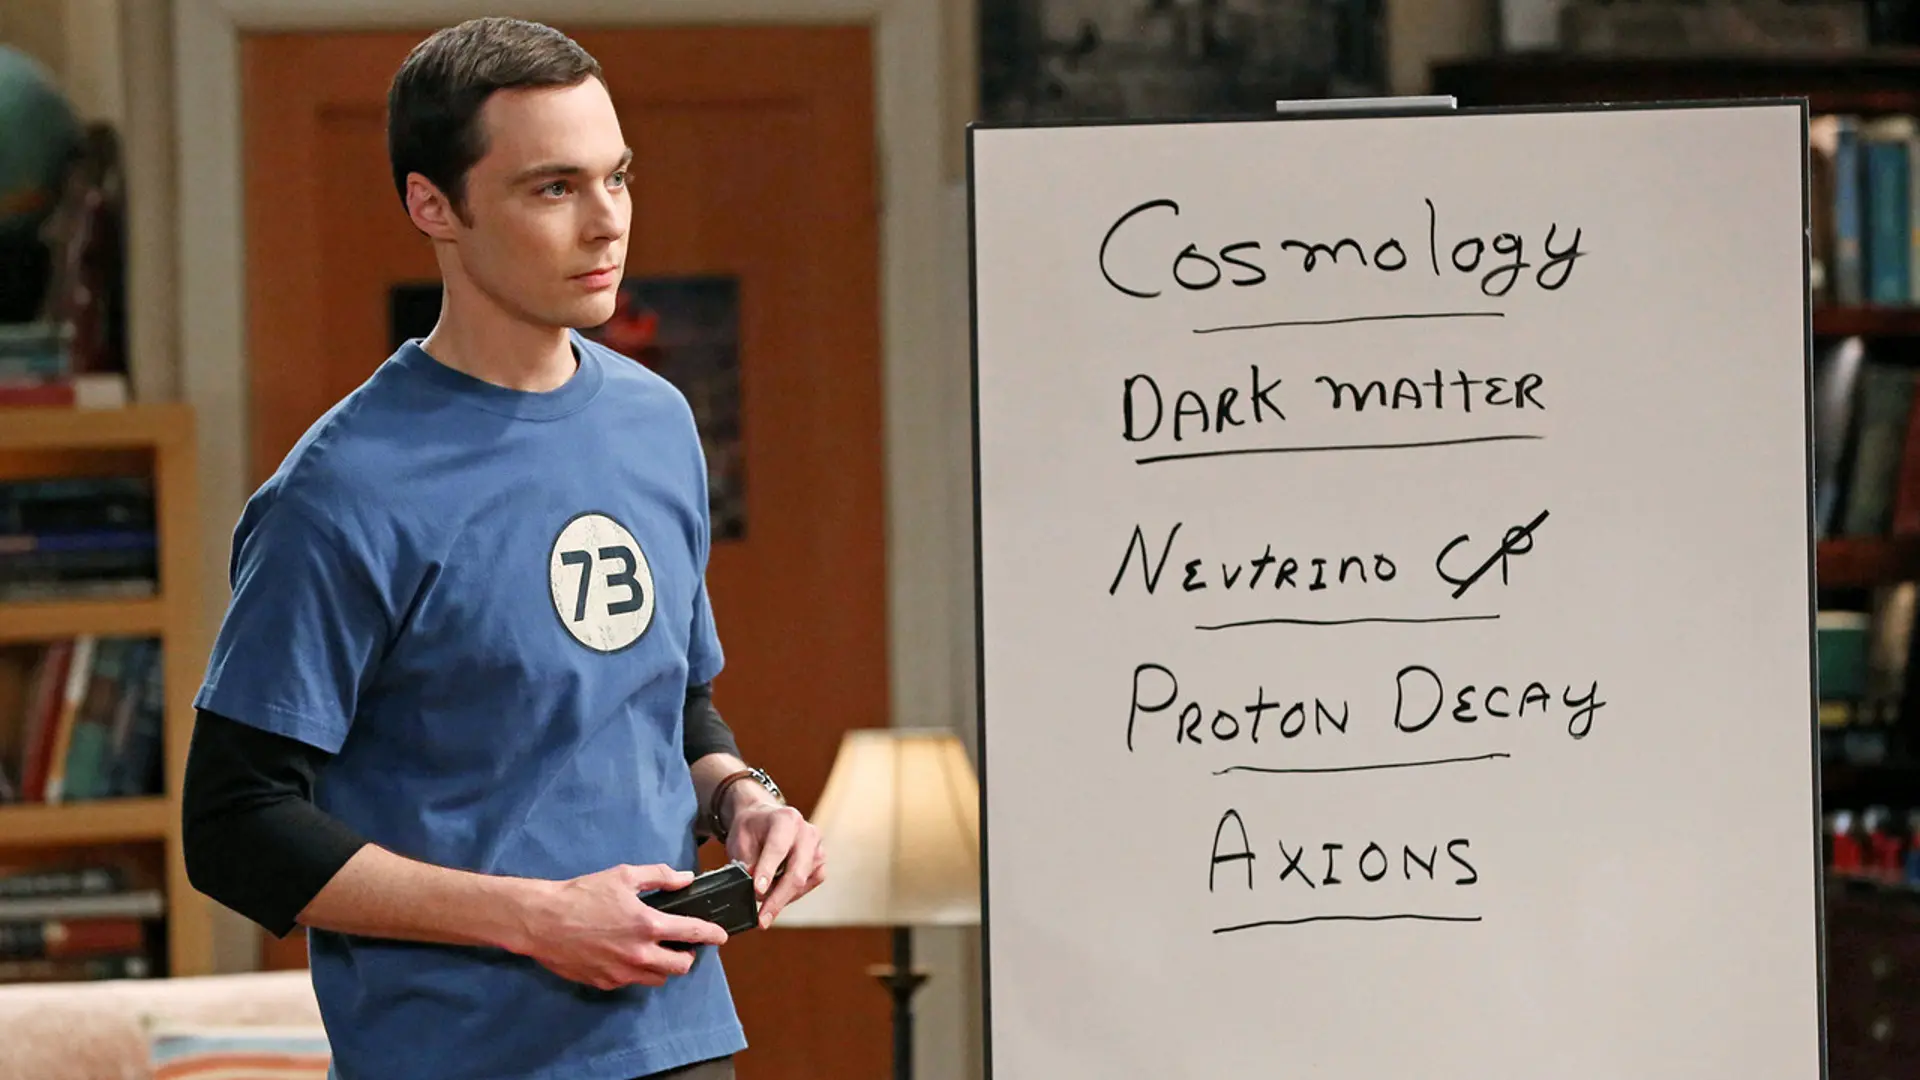 73
Cosmology
DARK MATTER
NEUTRINO CP
PROTON DECAY
AXIONS